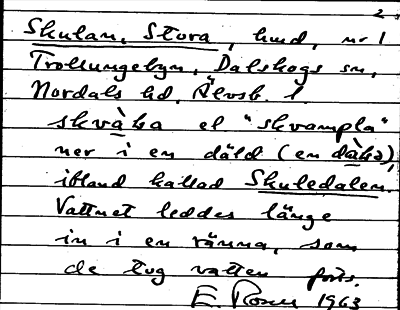 2
Skulan, Stora, hmd, nr 1
Trollungebyn, Dalskogs sn,
Nordals hd, Älvsb. l.
skvàka el "skvampla"
ner i en däld (en dàka),
ibland kallad Skuledalen.
Vattnet leddes länge
in i en ränna, som
de tog vatten från.
E. Rosen 1963